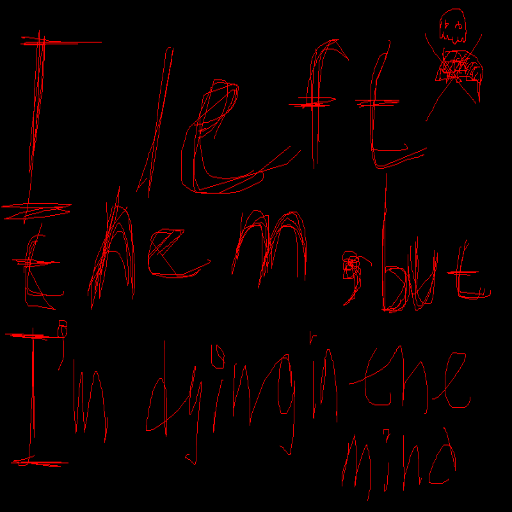 I left
them, but
I'm dying in the
mind